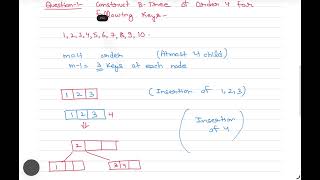 Question-1- Construct B-Tree of Order 4 for
following Keys-
1, 2, 3, 4, 5, 6, 7, 8, 9, 10.
order (Atmost 4 child)
m-1 = 3 Keys at each node
1 2 3 (Insertion of 1,2,3)
1 2 3 4
(Insertion of 4)
2
1 3 4